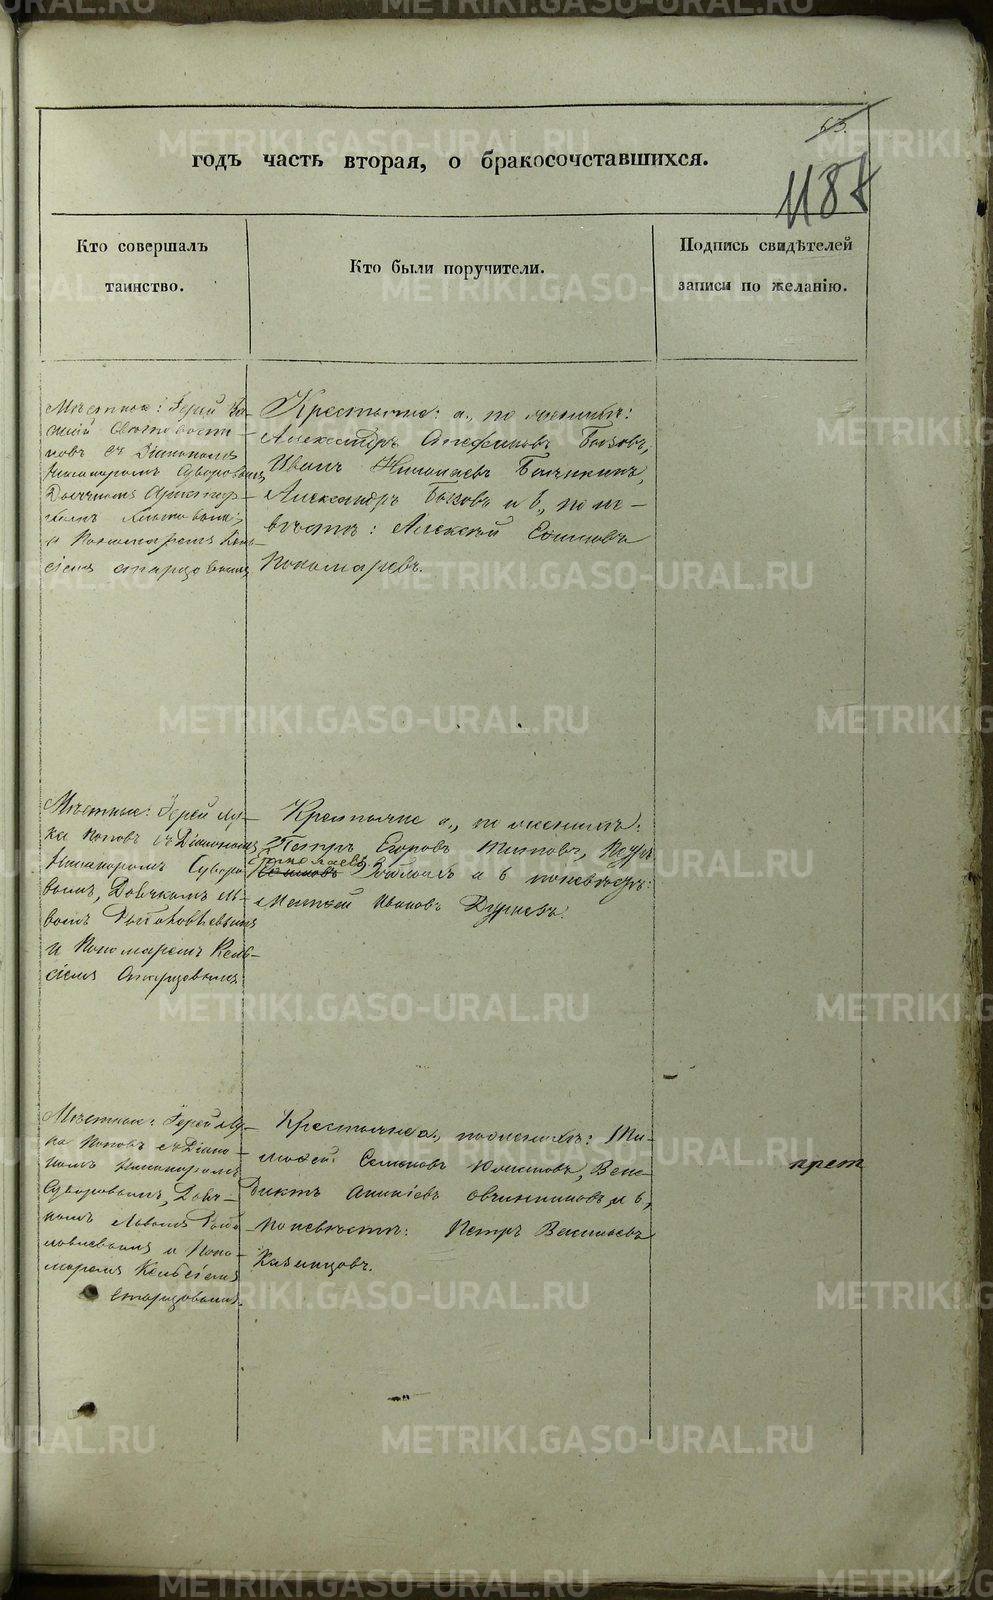 63.
1188
годъ часть вторая, о бракосочетавшихся.
Кто совершалъ
таинство.
Кто были поручители.
Подпись свидѣтелей
записи по желанію.
Мѣстные: Іерей
съ Діакономъ
Никаноромъ Суворовымъ
Дьячкомъ
и Пономаремъ
Старцовымъ
Крестьяне: а., по женихѣ:
Александръ Быковъ,
Иванъ Николаевъ
Александръ Быковъ и б, по не-
вѣстѣ: Алексѣй
Пономаревъ.
Мѣстные: Іерей Лу-
ка Поповъ съ Діакономъ
Никаноромъ Суворо-
вымъ, Дьячкомъ Ль-
вомъ
и Пономаремъ Кель-
сіемъ Старцовымъ
Крестьяне а., по женихѣ:
Петръ Егоровъ Титовъ,
Николаевъ
и б по невѣстѣ:
Матвей Ивановъ
Мѣстные: Іерей Лу-
ка Поповъ съ Діако-
номъ Никаноромъ
Суворовымъ, Дьяч-
комъ Львомъ
и Поно-
маремъ Кельсіемъ
Старцовымъ.
Крестьяне а, по женихѣ: Ти-
мофей Семеновъ Вене-
диктъ Ананіевъ Овчинниковъ, и б,
по невѣстѣ: Петръ Васильевъ
Казанцовъ.
METRIKI.GASO-URAL.RU